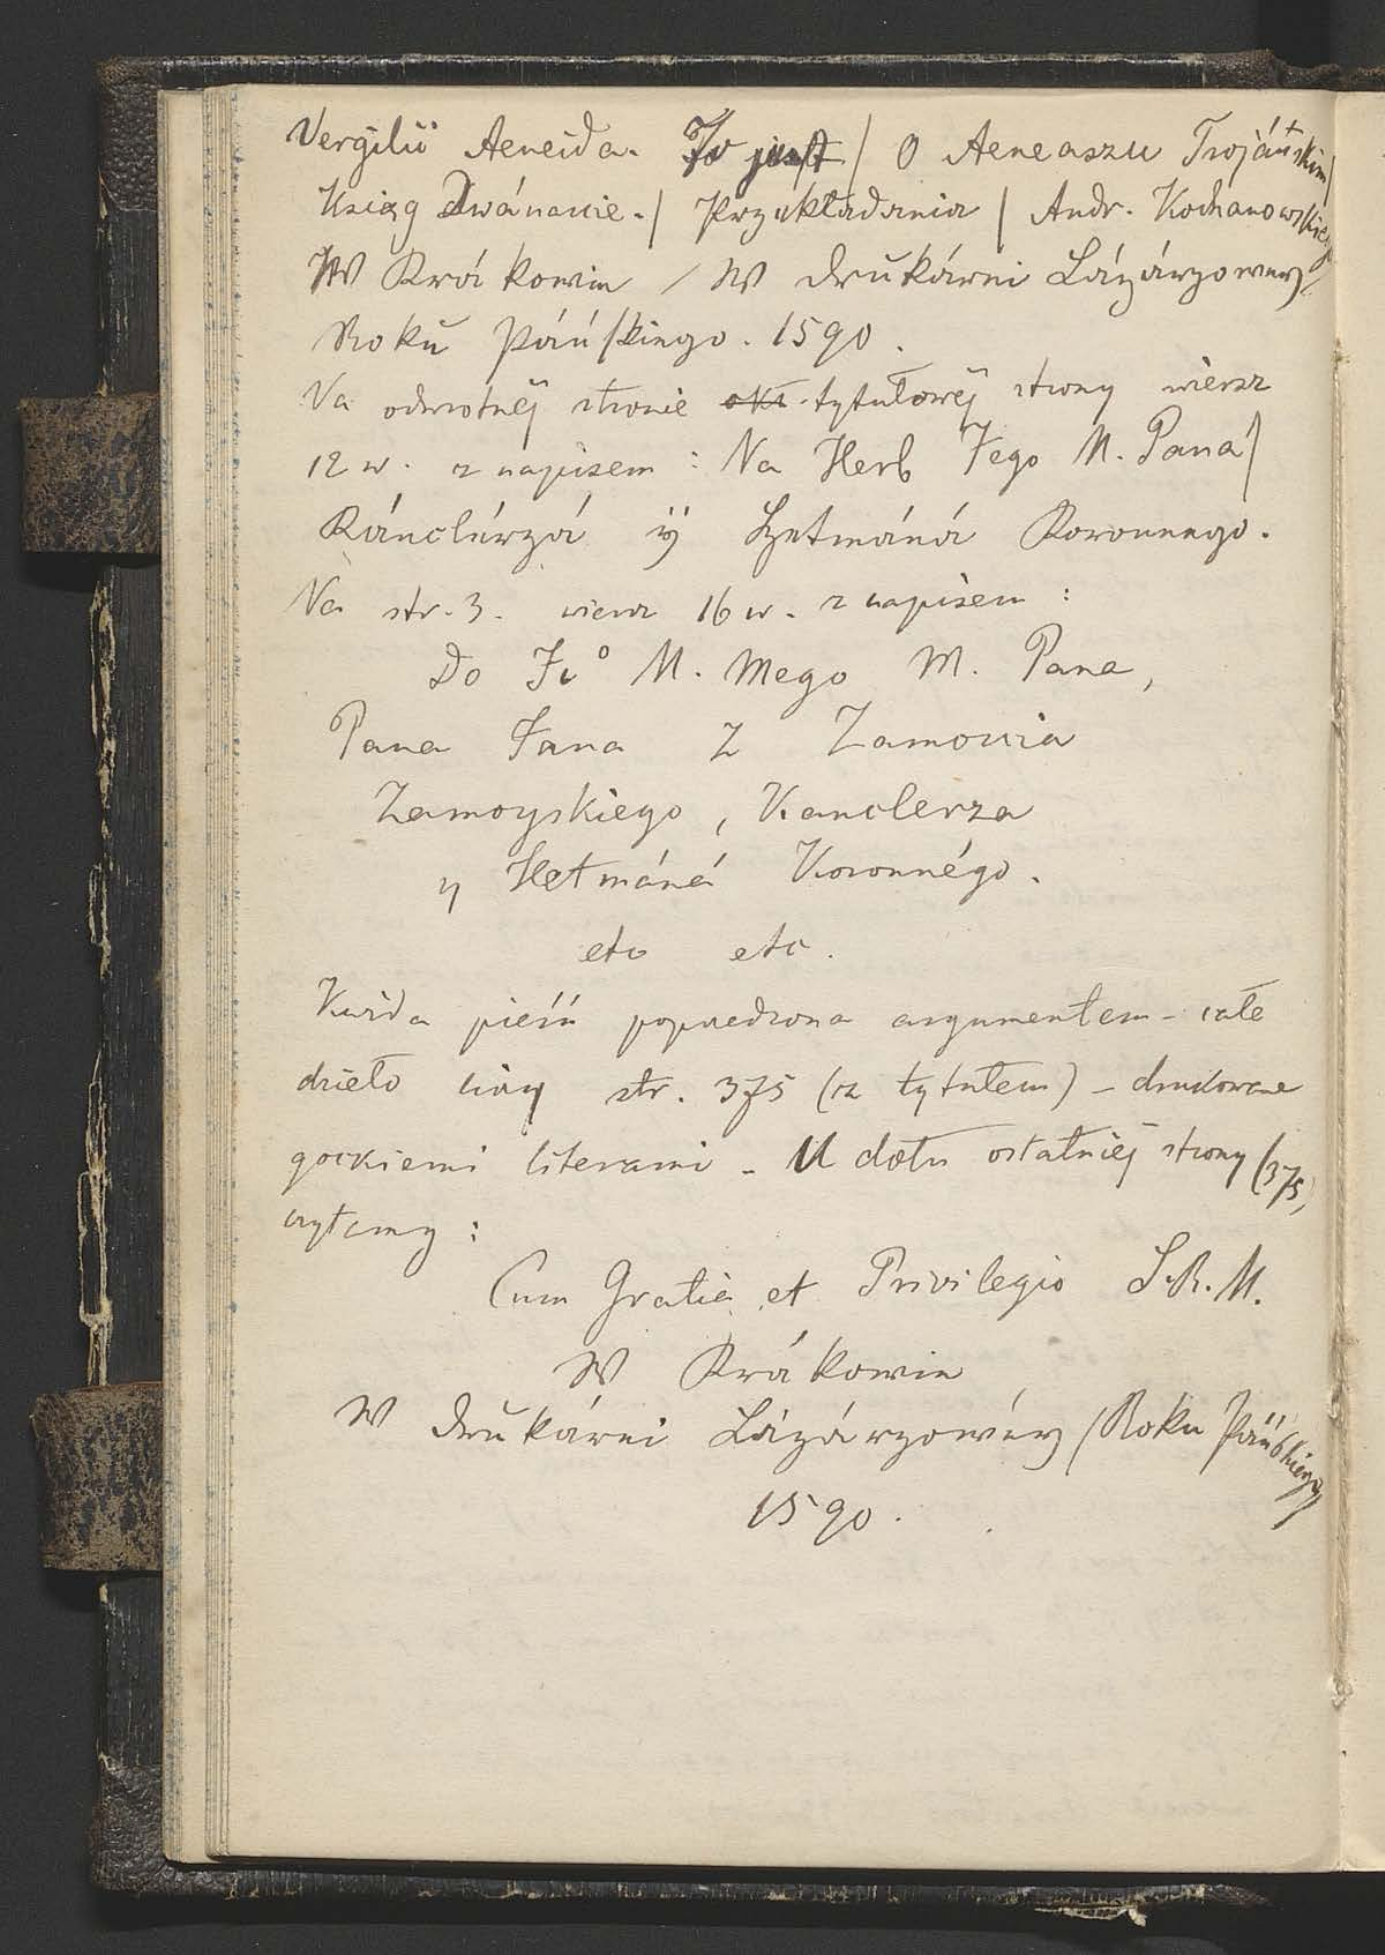 Vergilii Aeneida. To jest / O Aeneaszu Trojáńskim /
Ksiąg Dwánaście. / Przekładania / Andr. Kochanowskiego
W Krákowie / W drukárni Lázárzowey /
Roku Páńskiego. 1590.
Na odwrotnéj stronie tytułowéj strony wiersz
12 w. z napisem: Na Herb Jego M. Pana /
Kánclérzá ÿ Hetmáná Koronnego.
Na str. 3. wiersz 16 w. z napisem:
Do Je° M. Mego M. Pana,
Pana Jana Z Zamoscia
Zamoyskiego, Kanclerza
y Hetmáná Koronnégo.
etc etc.
Każda pieśń poprzedzona argumentem – całe
dzieło liczy str. 375 (z tytułem) – drukowane
gockiemi literami – U dołu ostatniéj strony (375)
czytamy:
Cum Gratia et Privilegio S.R.M.
W Krákowie
W drukárni Lázárzowéy / Roku Páńskiego
1590.